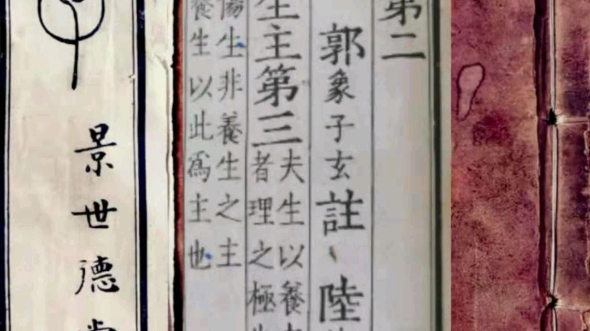 第二
郭象子玄註 陸
生主第三
夫生以養
者理之極
傷生非養生之主
養生以此爲主也
景世德